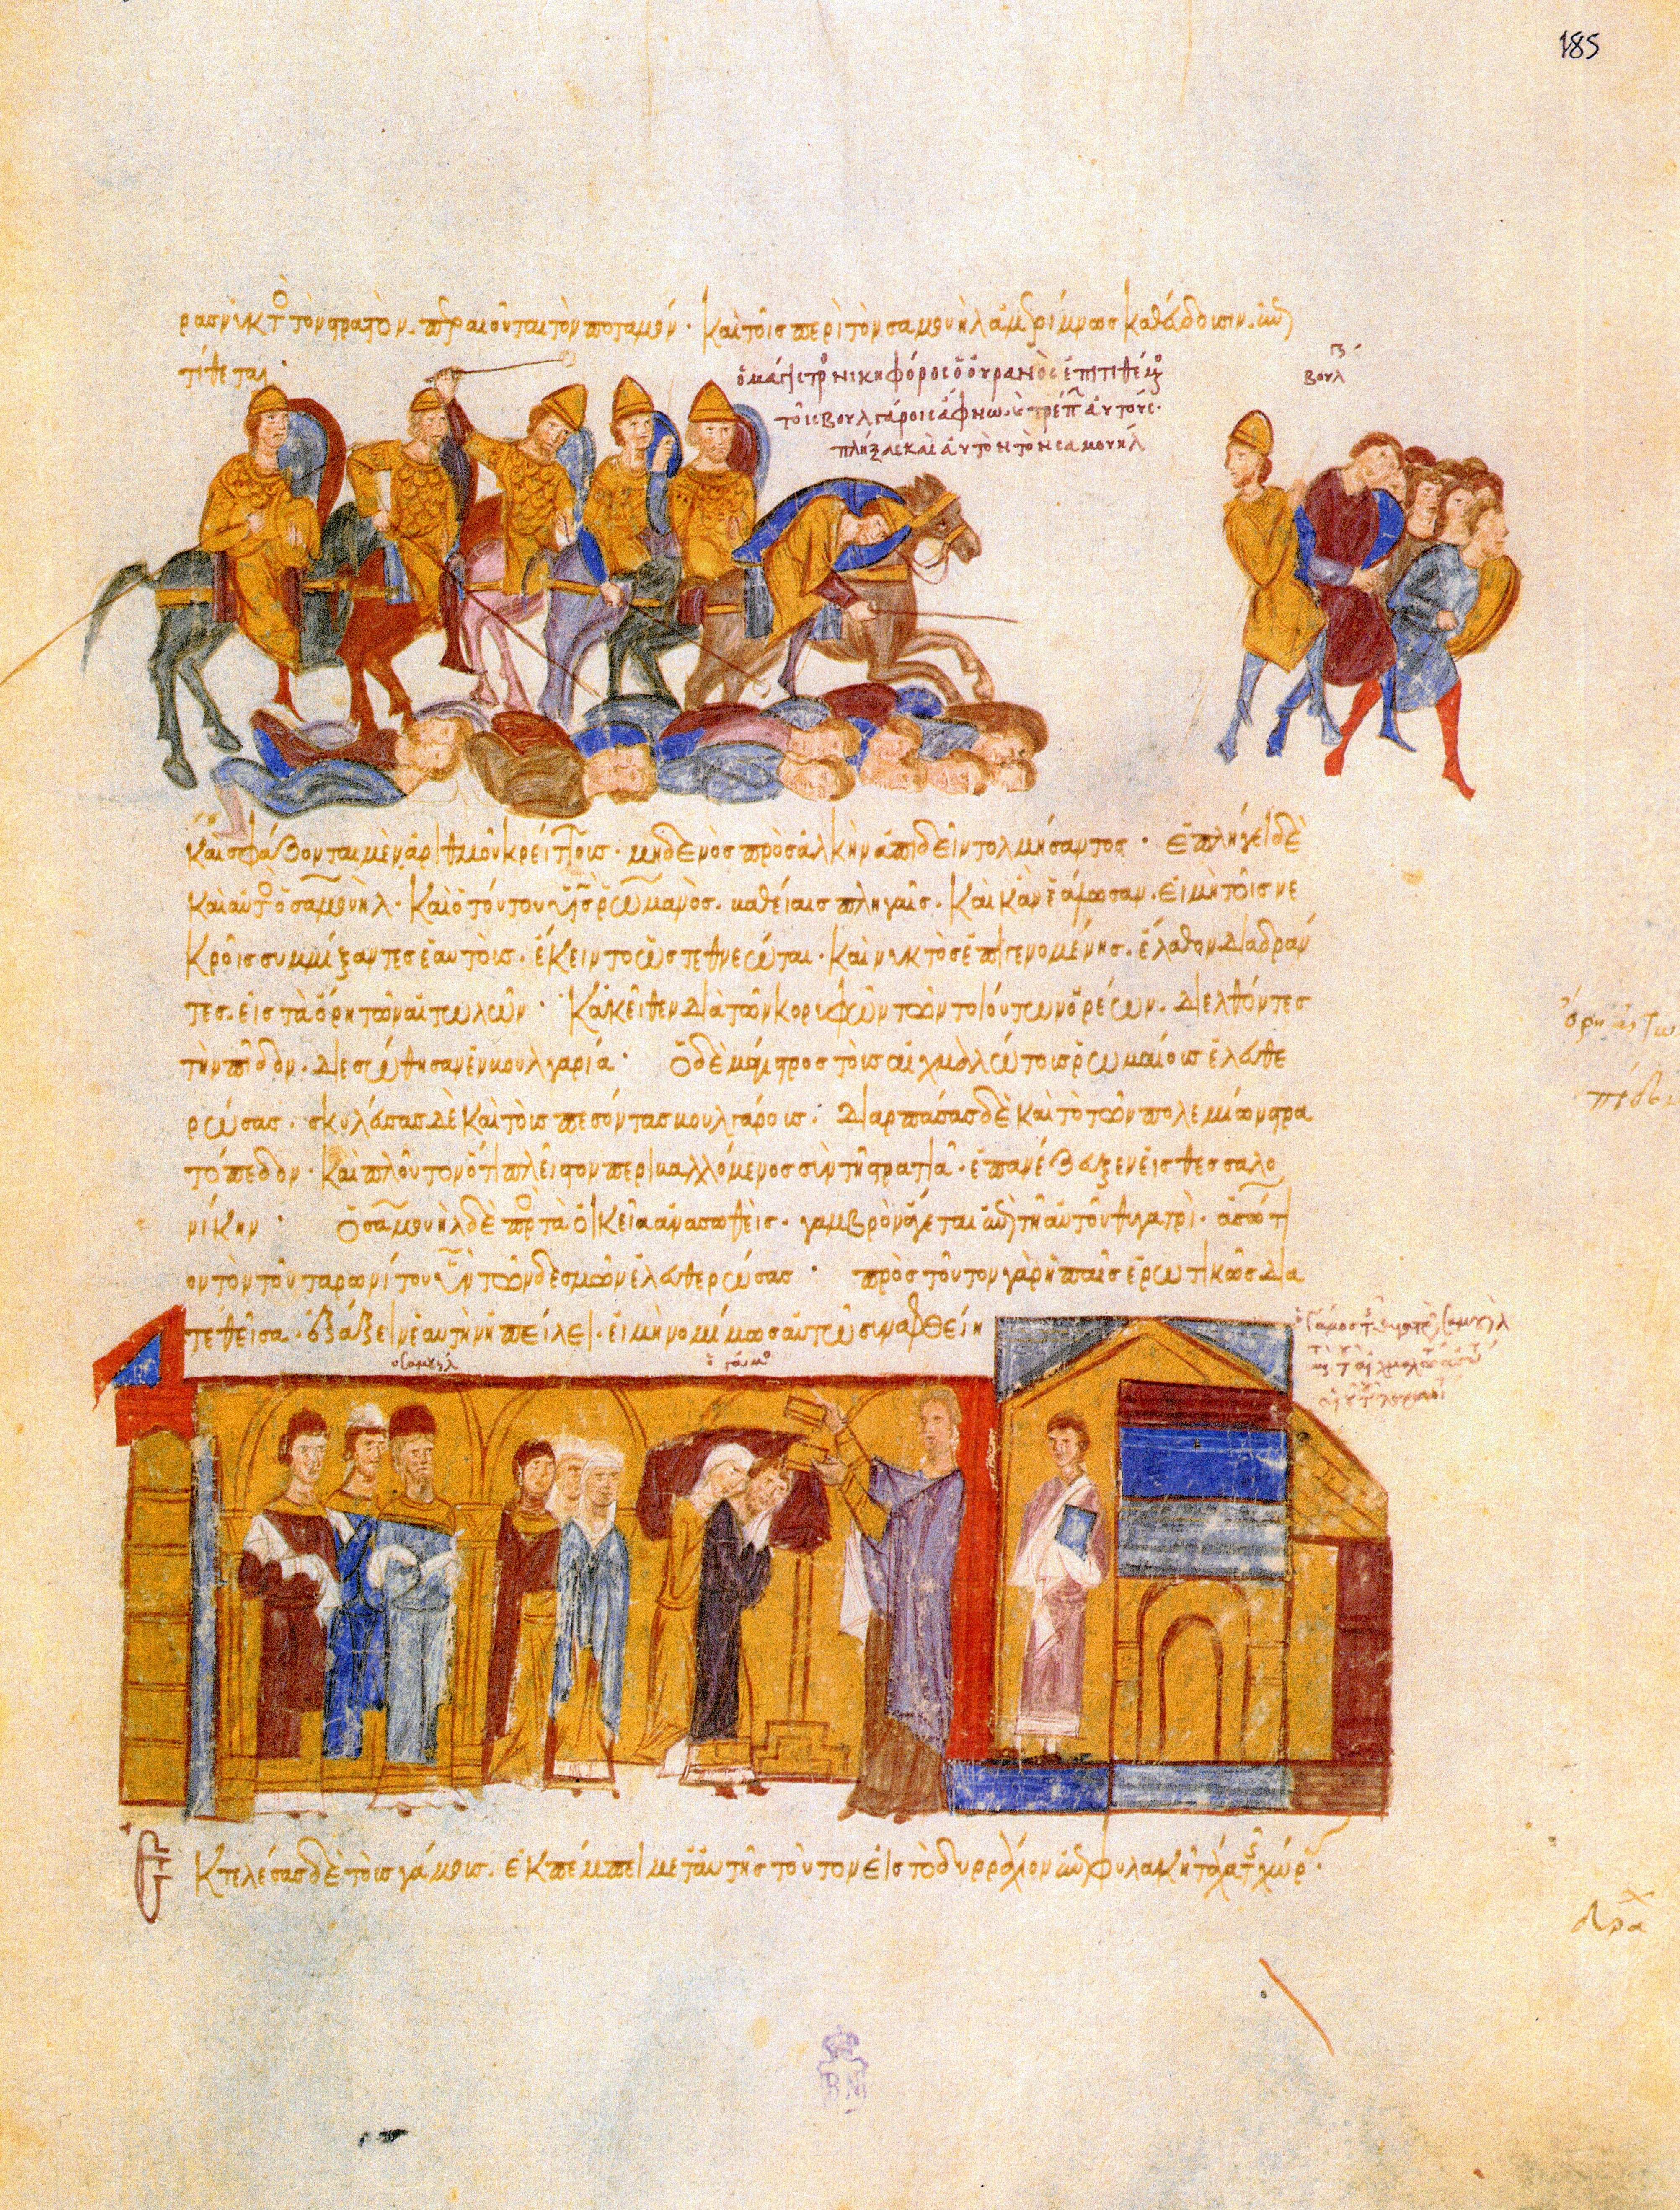 185
ρας νυκτὸς τὸν στρατὸν. περαιοῦται τὸν ποταμόν· καὶ τοῖς περὶ τὸν σαμουὴλ ἀμερίμνως καθεύδουσιν. ἐπι
τίθεται·
ὁ μάγιστρος νικηφόρος ὁ οὐρανὸς ἐπιτιθέμενος
τοῖς βουλγάροις ἄφνω. τρέπει αὐτούς·
πλήξας καὶ αὐτὸν τὸν σαμουήλ
βουλ
καὶ σφάζονται μὲν ἀριθμοῦ κρείττους· μηδενὸς πρὸς ἀλκὴν ἀπιδεῖν τολμήσαντος· ἐπλήγει δὲ
καὶ αὐτὸς ὁ σαμουὴλ· καὶ ὁ τούτου υἱὸς ῥωμανὸς. καθείαις πληγαῖς. κἂν ἑάλωσαν. εἰ μὴ τοῖς νε
κροῖς συμμίξαντες ἑαυτοὺς. ἔκειντο ὡς τεθνεῶται· καὶ νυκτὸς ἐπιγενομένης. ἔλαθον διαδράν
τες. εἰς τὰ ὄρη τῶν αἰτωλῶν· κἀκεῖθεν διὰ τῶν κορυφῶν τῶν τοιούτων ὀρέων. διελθόντες
τὴν πίδδον. διεσώθησαν ἐν βουλγαρία· ὁ δὲ μάγιστρος τοὺς αἰχμαλώτους ῥωμαίους ἐλευθε
ρώσας. σκυλεύσας δὲ καὶ τοὺς πεσόντας βουλγάρους. διαρπάσας δὲ καὶ τὸ τῶν πολεμίων στρα
τόπεδον. καὶ πλοῦτον ὅτι πλεῖστον περιβαλλόμενος σὺν τῇ στρατιᾷ. ἐπανέζευξεν εἰς θεσσαλο
νίκην· ὁ σαμουὴλ δὲ πρὸς τὰ οἰκεῖα ἀνασωθεὶς. γαμβρὸν ἄγεται ἐπὶ τῇ αὐτοῦ θυγατρὶ. ἀσώτι
ον τὸν τοῦ ταρωνίτου υἱὸν τῶν δεσμῶν ἐλευθερώσας· πρὸς τοῦτον γὰρ ἡ παῖς ἐρωτικῶς δια
τεθεῖσα. ἑαυτὴν ἠπείλει. εἰ μὴ νομίμως αὐτῷ συναφθείη
ὁ σαμουήλ
ὁ γάμος
ὁ γάμος τῆς θυγατρὸς σαμουὴλ
ὄρη
πίδδ
Ἐκτελέσας δὲ τοὺς γάμους. ἐκπέμπει μετ' αὐτῆς τοῦτον εἰς τὸ δυρράχιον ἐπὶ φυλακῇ τῆς χώρ
δυρα
BN